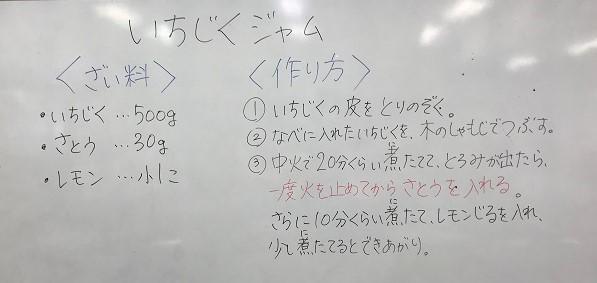 いちじくジャム
〈ざい料〉
・いちじく…500g
・さとう…30g
・レモン…小1こ
〈作り方〉
①いちじくの皮をとりのぞく。
②なべに入れたいちじくを、木のしゃもじでつぶす。
③中火で20分くらい煮たてて、とろみが出たら、
一度火を止めてからさとうを入れる。
さらに10分くらい煮たて、レモンじるを入れ、
少し煮たてるとできあがり。